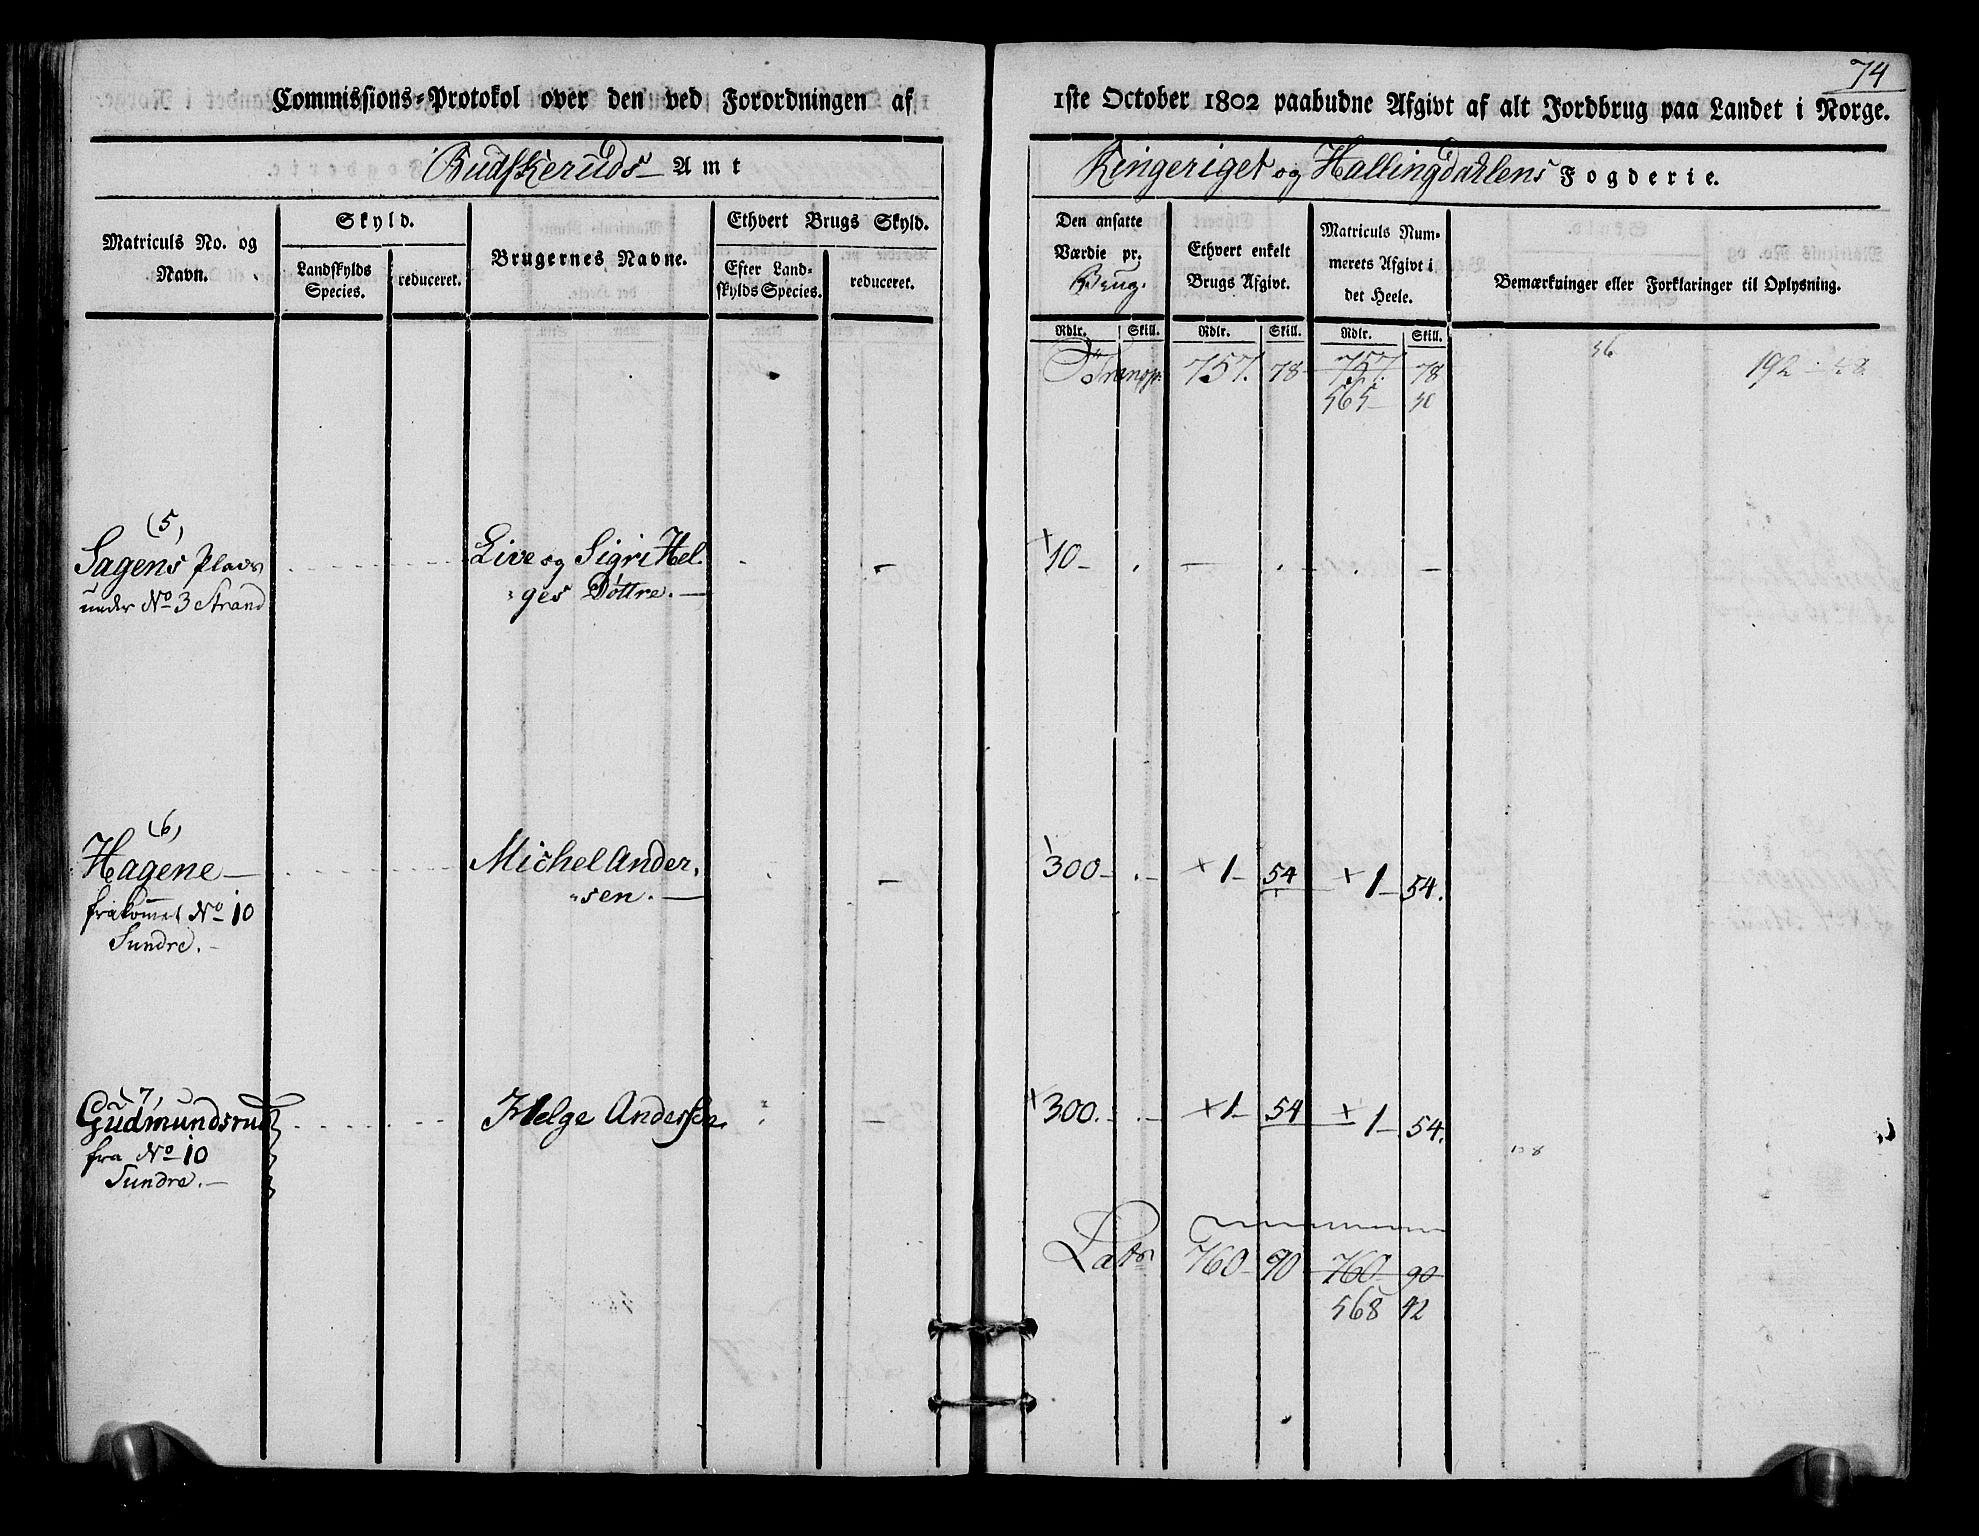 74
Commissions-Protokol over den ved Forordningen af 1ste October 1802 paabudne Afgivt af alt Jordbrug paa Landet i Norge.
Budskeruds Amt
Ringeriget og Hallingdahlens Fogderie.
Matriculs No. og Navn.
Skyld.
Landskylds Species.
reduceret.
Brugernes Navne.
Ethvert Brugs Skyld.
Efter Landskylds Species.
reduceret.
Den ansatte Værdie pr. Brug.
Ethvert enkelt Brugs Afgivt.
Matriculs Nummerets Afgivt i det Heele.
Bemærkninger eller Forklaringer til Oplysning.
Rdlr. Skill. Rdlr. Skill. Rdlr. Skill.
Transp. 757. 78 757. 78
565
192
(5)
Sagens Plads Live og Sigri Hel- 10
under No 3 Strand ges Døttre.
(6)
Hagene Michel Ander- 300 1 54 1 54.
frakommet No 10 sen.
Sundre.
7,
Gudmundsrud Helge Andersen 300. 1 54 1 54.
fra No 10
Sundre.
Lats 760 90 760 90
568 42